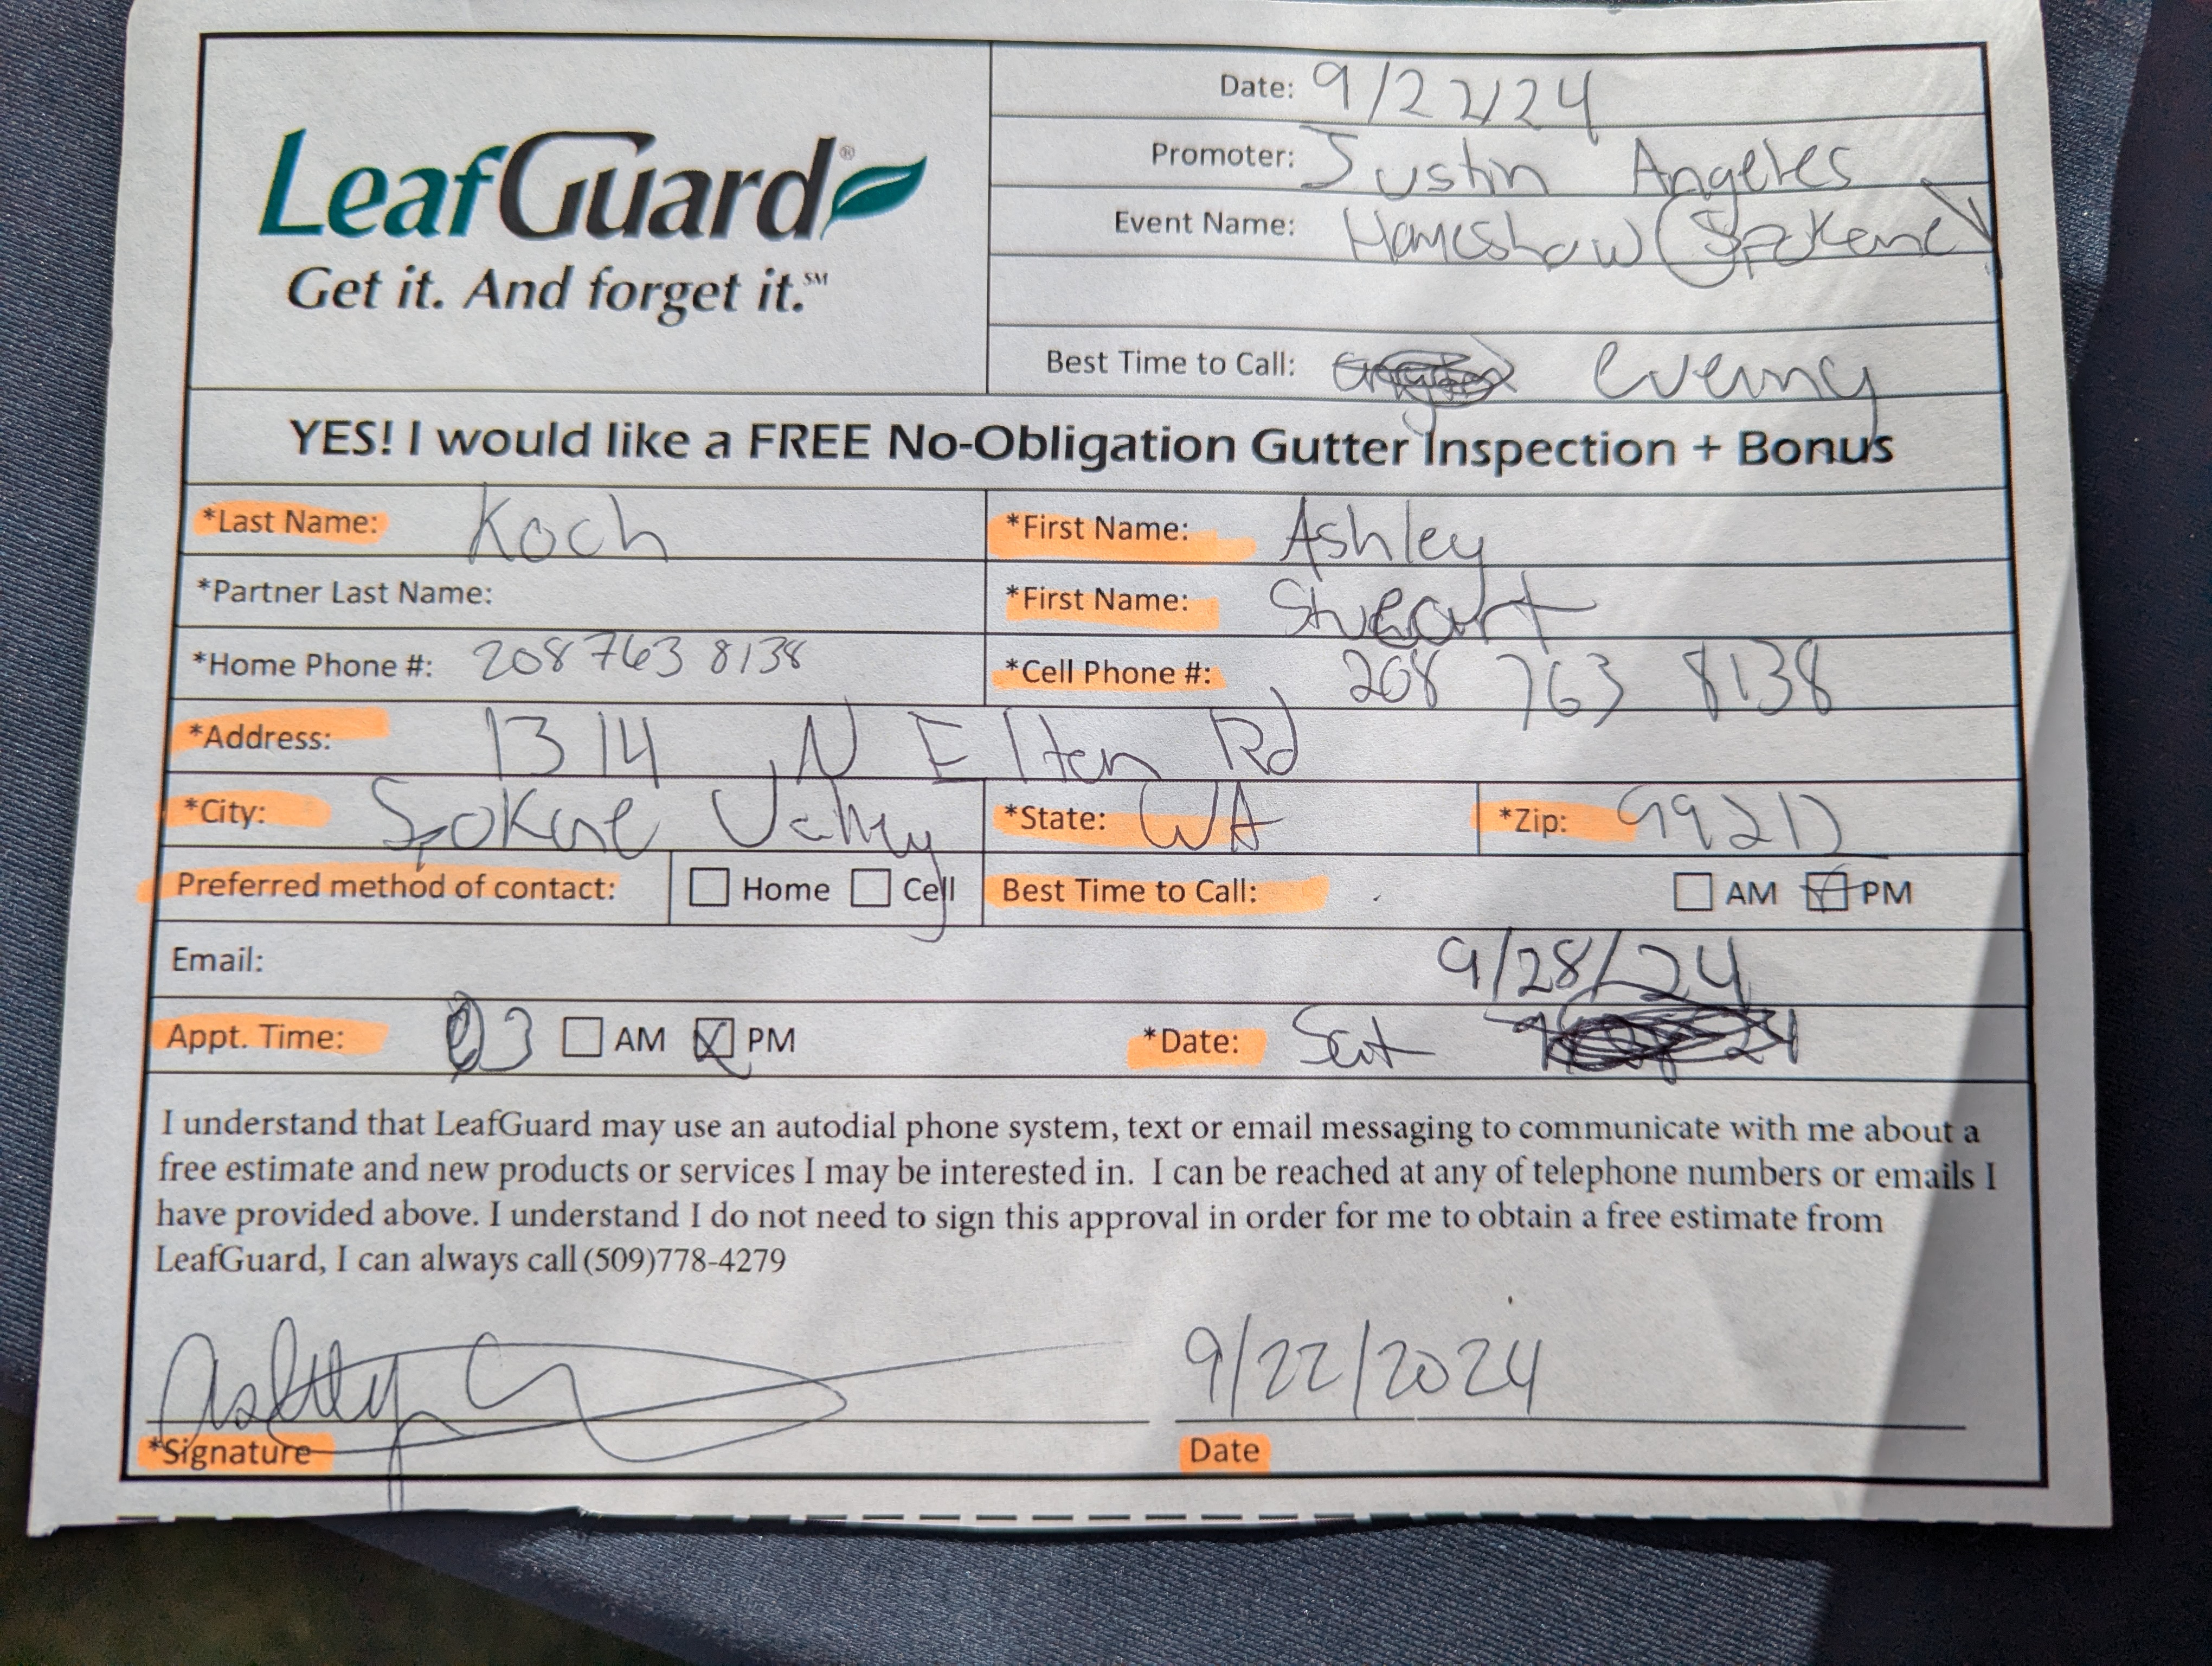 LeafGuard®
Get it. And forget it.℠
Date: 9/22/24
Promoter: Justin Angeles
Event Name: Homeshow (Spokane)
Best Time to Call: evening
YES! I would like a FREE No-Obligation Gutter Inspection + Bonus
*Last Name: Koch *First Name: Ashley
*Partner Last Name: *First Name: Stueart
*Home Phone #: 208 763 8138 *Cell Phone #: 208 763 8138
*Address: 1314 N Elton Rd
*City: Spokane Valley *State: WA *Zip: 99212
Preferred method of contact: Home Cell Best Time to Call: AM PM
Email: 9/28/24
Appt. Time: 3 AM PM *Date: Sat
I understand that LeafGuard may use an autodial phone system, text or email messaging to communicate with me about a
free estimate and new products or services I may be interested in. I can be reached at any of telephone numbers or emails I
have provided above. I understand I do not need to sign this approval in order for me to obtain a free estimate from
LeafGuard, I can always call (509)778-4279
Ashley 9/22/2024
*Signature Date